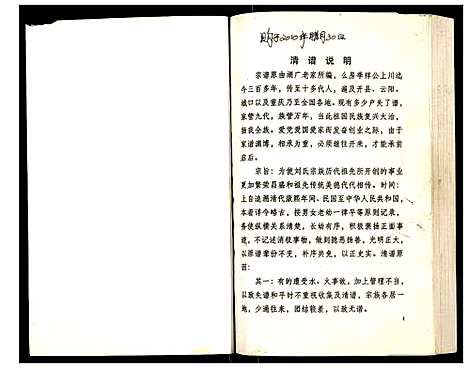 购于2010年腊月30日
清谱说明
宗谱原由湖广老家所编，么房季祥公上川迄
今三百多年，传至十多代人，遍及开县、云阳、
城口以及重庆乃至全国各地。现有多少户失了谱，
家管九代，族管万年，当此祖国民族复兴大治，
振我全族。爱党爱国爱家而发奋创业之际，由于
家谱渊博，相承为重，必须继往开来，才能承前
启后。
宗旨：为使刘氏宗族历代祖先所开创的事业
更加繁荣昌盛和祖先传统美德代代相传。时间：
上自追溯清代康熙年间、民国至中华人民共和国，
本着详今略古，按男女老幼一律平等原则记录，
务使纵横关系清楚，长始有序，积极褒扬正面事
迹，不叙述消极事物，做到隐恶扬善，光明正大，
以原谱辈份不变，补序共免，以正史实。清谱原
因：
其一：有的遭受水、火事故，加上管理不当，
以致失谱和平时不重视收集及清谱，宗族各居一
地，少通往来，团结较差，以致无谱。
1